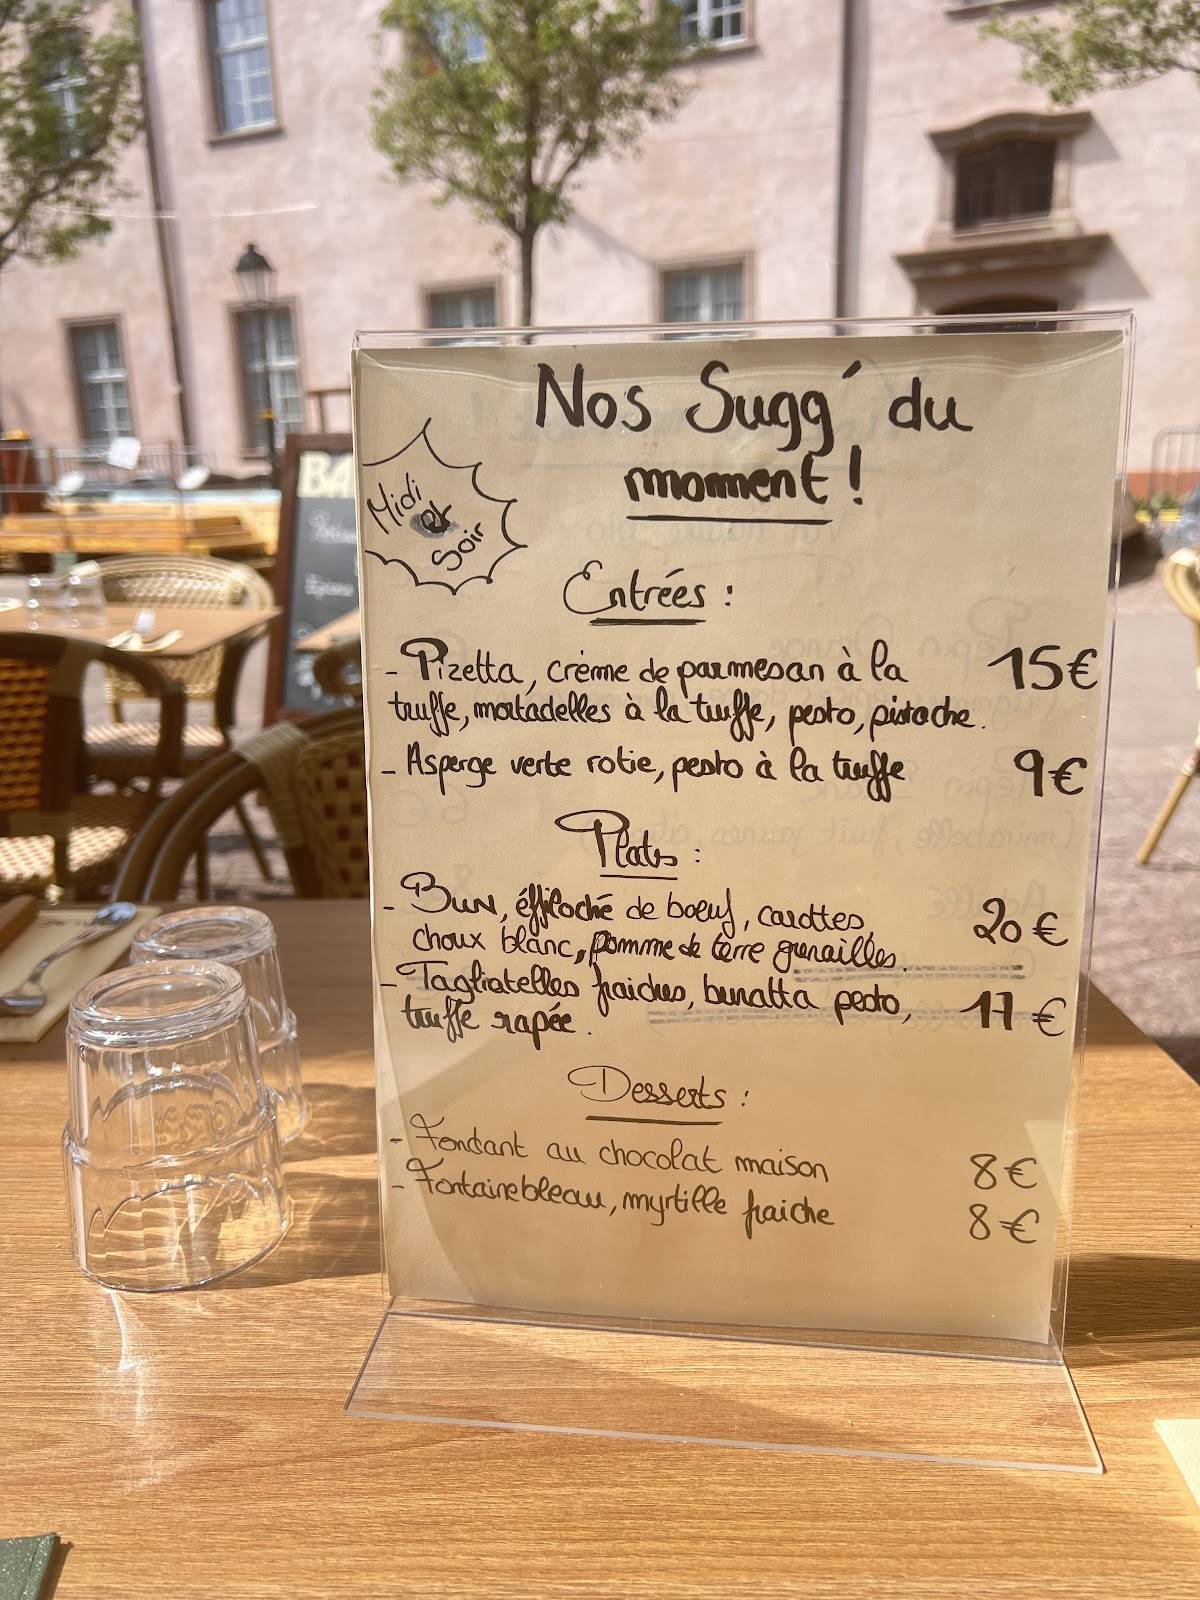 Nos Sugg' du
moment !
Midi
et
Soir
Entrées :
- Pizetta, crème de parmesan à la 15€
truffe, mortadelles à la truffe, pesto, pistache.
- Asperge verte rotie, pesto à la truffe 9€
Plats :
- Bun, éffiloché de boeuf, carottes, 20€
choux blanc, pomme de terre grenailles.
- Tagliatelles fraiches, burratta pesto, 17€
truffe rapée.
Desserts :
- Fondant au chocolat maison 8€
- Fontainebleau, myrtille fraiche 8€